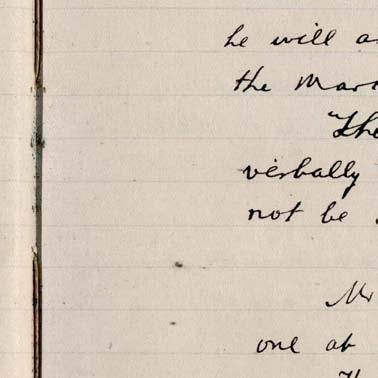 he will
the
"The
verbally
not be
Mr
one at